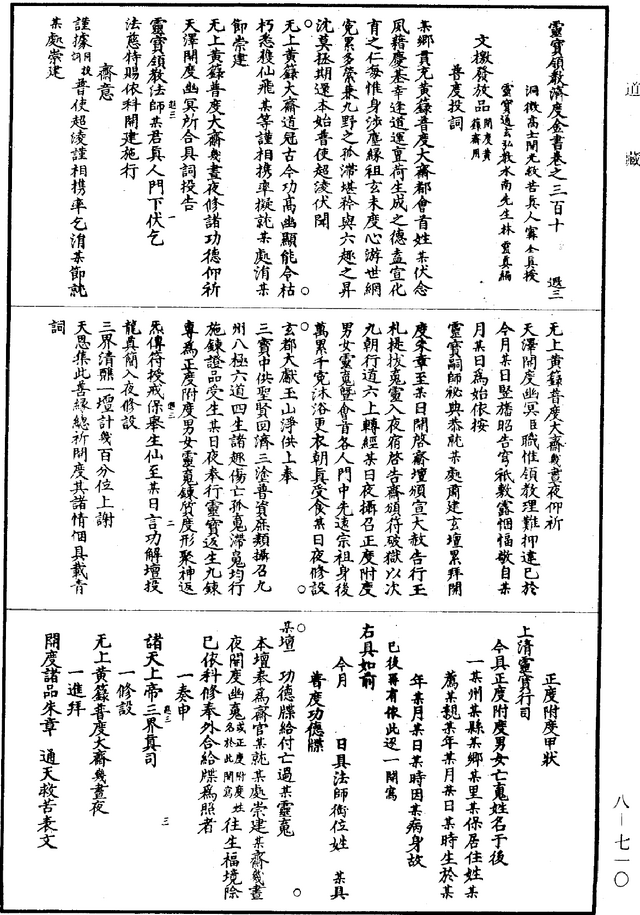 道藏
靈寶領教濟度金書卷之三百十 遐三
洞微高士開光救苦真人甯全真授
靈寶通玄弘教水南先生林靈真編
文檄發放品開度黃籙齋用
普度投詞
某鄉貫充黃籙普度大齋都會首姓某伏念
夙藉慶基幸逢道運宣荷生成之德盍宣化
育之仁每惟身涉塵緣祖玄未度心游世網
冤累多縈兼九野之孤滯堪矜與六趣之昇
沈莫拯期還本始普使超淩伏聞
无上黃籙大齋道冠古今功高幽顯能令枯
朽悉獲仙飛某等謹相携率擬就某處洧某
節崇建
无上黃籙普度大齋幾晝夜修諸功德仰祈
天澤開度幽冥所合具詞投告
靈寶領教法師某君真人門下伏乞
法慈特賜依科開建施行
齋意
謹據某鄉貫某詞普使超淩謹相携率乞洧某節就
某處崇建
无上黃籙普度大齋幾晝夜仰祈
天澤開度幽冥臣職惟領教理難抑違已於
今月某日竪旛昭告穹祇敷露悃愊敬自某
月某日為始依按
靈寶嗣師祕典恭就某處肅建玄壇累拜開
度朱章至某日開啓齋壇頒宣大赦告行玉
札提拔寃靈入夜宿啓告齋頒符破獄以次
九朝行道六上轉經某日夜攝召正度附度
男女靈魂曁會首各人門中先遠宗祖身後
萬累千寃沐浴更衣朝真受食某日夜修設
玄都大獻玉山淨供上奉
三寶中供聖賢回濟三塗普資庶類攝召九
州八極六道四生諸趣傷亡孤魂滯魄均行
施鍊證品受生某日夜奉行靈寶返生九鍊
專為正度附度男女靈魂鍊質度形聚神返
炁傳符授戒保舉生仙至某日言功解壇投
龍真簡入夜修設
三界清醮一壇計幾百分位上謝
天恩集此善緣總祈開度其諸情悃具載青
詞
正度附度甲狀
上清靈寶行司
今具正度附度男女亡魂姓名于後
一某州某縣某鄉某里某保居住姓某
薦某親某年某月某日某時生於某
年某月某日某時因某病身故
已後尋有依此逐一開寫
右具如前
今月 日具法師銜位姓 某具
普度功德牒
某壇 功德牒給付亡過某靈魂
本壇奉為齋官某就某處崇建某齋幾晝
夜開度幽魂或正度附度姓名於此開寫往生福境除
已依科修奉外合給牒為照者
一奏申
諸天上帝三界真司
一修設
无上黃籙普度大齋幾晝夜
一進拜
開度諸品朱章 通天救苦表文
八—七一〇